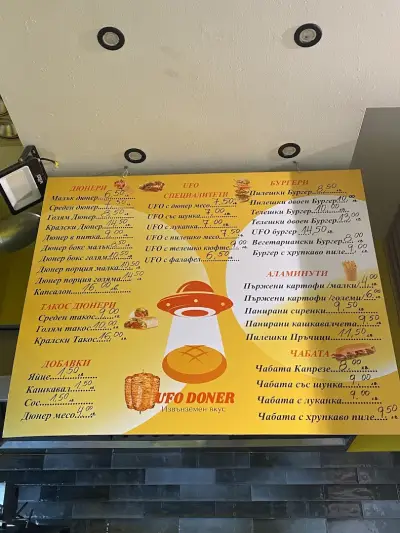 ДЮНЕРИ
Малък дюнер 6.50
Среден дюнер
Голям Дюнер
Кралски Дюнер
Дюнер в питка
Дюнер бокс малък
Дюнер бокс голям
Дюнер порция малка
Дюнер порция голяма
Капсалон 16.00 лв
ТАКОС ДЮНЕРИ
Среден такос 9.00 лв
Голям такос 10.00 лв
Кралски Такос 16.00 лв
ДОБАВКИ
Яйце 1.50 лв
Кашкавал 1.50 лв
Сос 1.50 лв
Дюнер месо 4.00 лв
UFO
СПЕЦИАЛИТЕТИ
UFO с дюнер месо 7.50 лв
UFO със шунка 7.00 лв
UFO с луканка 7.00 лв
UFO с пилешко месо 7.50
UFO с телешко кюфте 9.00 лв
UFO с фалафел 6.50 лв
UFO DONER
Извънземен вкус
БУРГЕРИ
Пилешки Бургер 8.50 лв
Пилешки двоен Бургер
Телешки Бургер
Телешки двоен Бургер 13.00
UFO бургер 14.50 лв
Вегетариански Бургер
Бургер с хрупкаво пиле 9.00 лв
АЛАМИНУТИ
Пържени картофи /малки/ 4.00
Пържени картофи /големи/ 6.00
Панирани сиренки 9.50 лв
Панирани кашкавалчета 9.50 лв
Пилешки Пръчици 11.50 лв
ЧАБАТА
Чабата Капрезе 8.00 лв
Чабата със шунка 9.00 лв
Чабата с луканка 9.00 лв
Чабата с хрупкаво пиле 9.50 лв